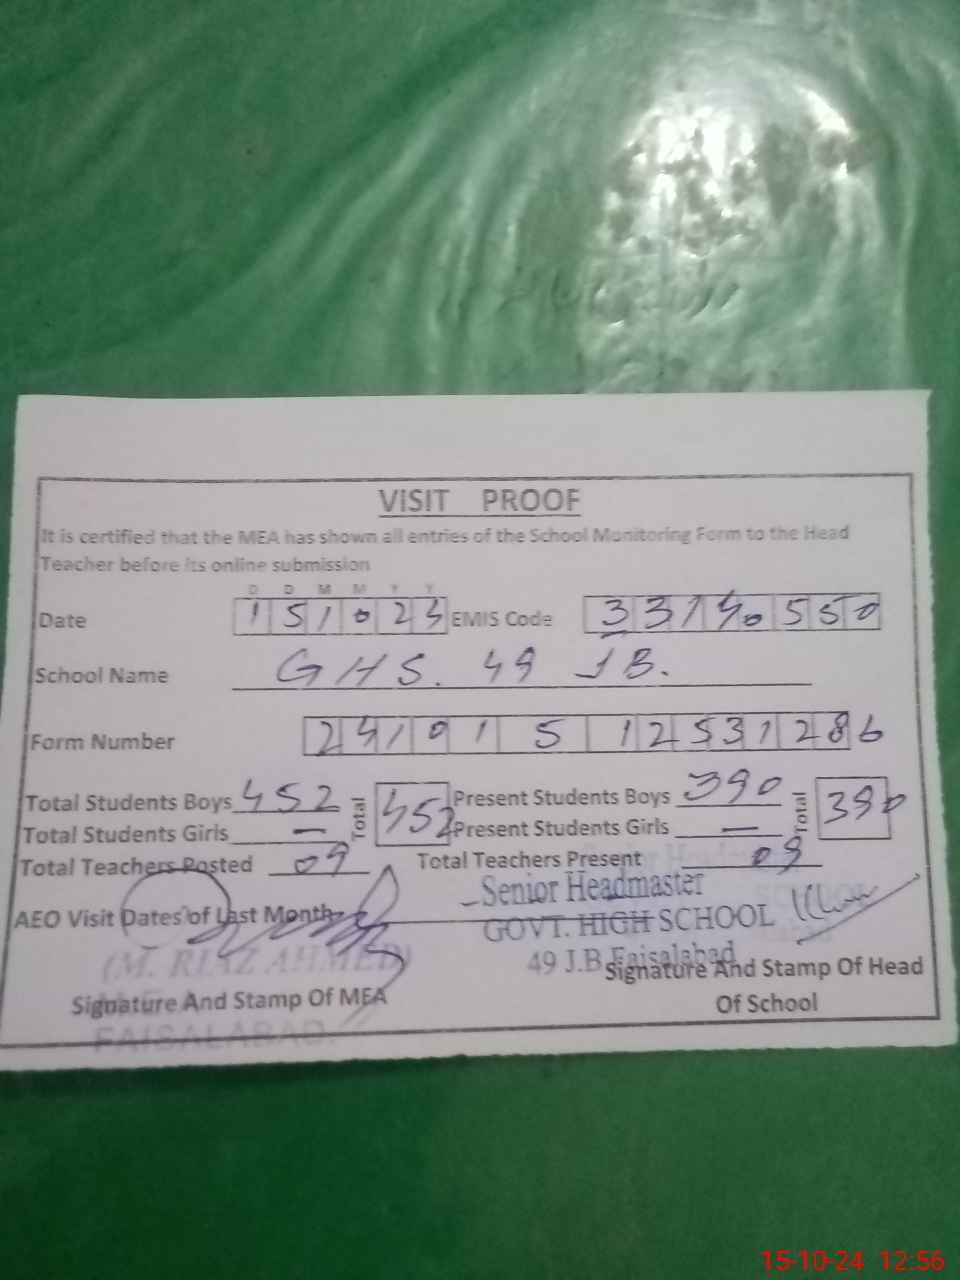 VISIT PROOF
It is certified that the MEA has shown all entries of the School Monitoring Form to the Head
Teacher before its online submission
D D M M Y Y
Date 151024 EMIS Code 33140550
School Name GHS. 49 JB.
Form Number 24101512531286
Total Students Boys 452 Total 452 Present Students Boys 390 Total 390
Total Students Girls — Present Students Girls —
Total Teachers Posted 09 Total Teachers Present 09
Senior Headmaster
AEO Visit Dates of Last Month GOVT. HIGH SCHOOL
(M. RIAZ AHMED) 49 J.B Faisalabad
Signature And Stamp Of MEA Signature And Stamp Of Head
Of School
FAISALABAD.
15-10-24 12:56